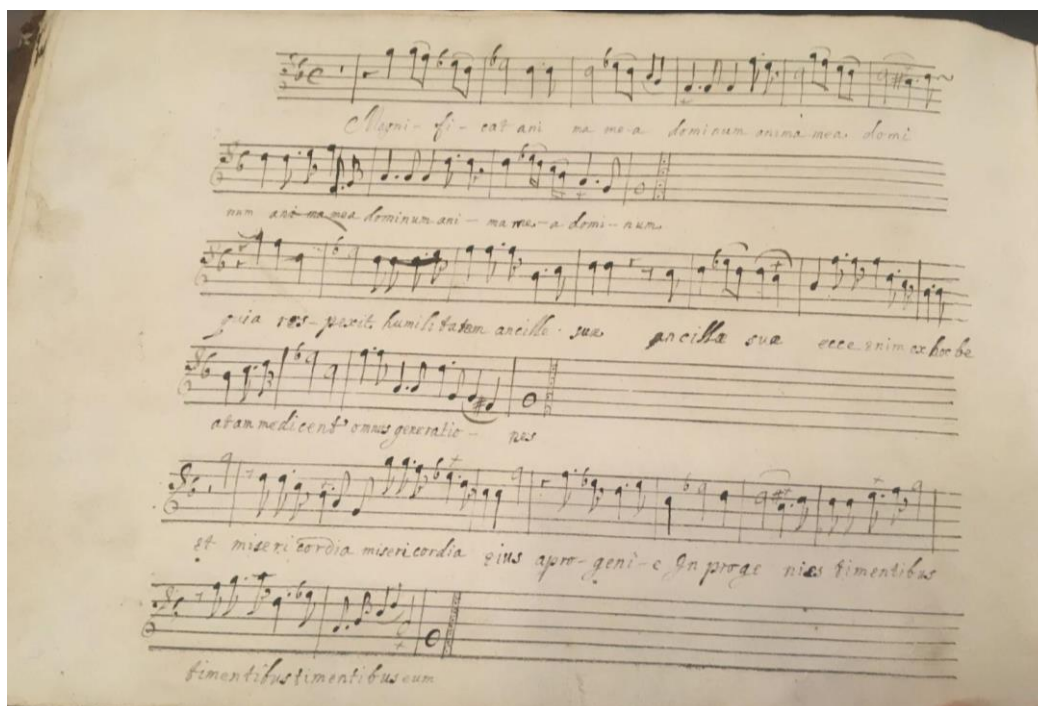 Magni - fi - cat ani ma me-a dominum anima mea domi
num ani ma mea dominum ani - ma me - a domi - num
quia res - pexit humilitatem ancille suæ ancillæ suæ ecce enim ex hoc be
atam me dicent omnes generatio - nes
et misericordia misericordia eius apro - geni - e In proge nies timentibus
timentibus timentibus eum